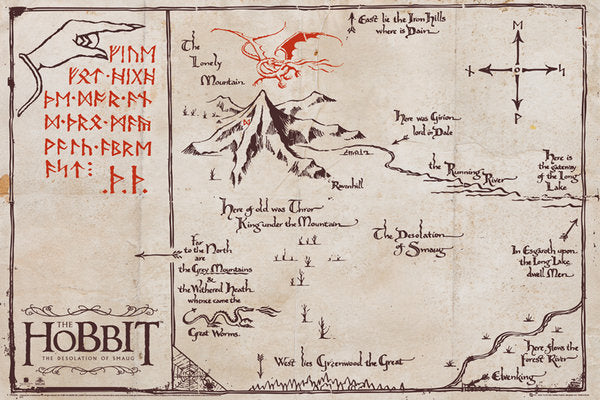 ᚠᛁᚢᛖ
ᚠᛟᛏ·ᚻᛁᚷᚻ
ᚦᛖ·ᛞᚩᚱ·ᚪᚾ
ᛞ·ᚦᚱᛟ·ᛗᚫᚣ
ᚹᚪᛚᚳ·ᚪᛒᚱᛖ
ᚪᛋᛏ⁝
·ᚦ·ᚦ·
The
Lonely
Mountain
East lie the Iron Hills
where is Dain
ᛖ
ᚾ ᛋ
ᚹ
Here was Girion
lord in Dale
the Running River
Here is
the gateway
of the Long
Lake
Ravenhill
Here of old was Thror
King under the Mountain
The Desolation
of Smaug
In Esgaroth upon
the Long Lake
dwell Men
Far
to the North
are
the Grey Mountains
&
the Withered Heath
whence came the
Great Worms
THE
HOBBIT
THE DESOLATION OF SMAUG
West lies Greenwood the Great
Here flows the
Forest River
Elvenking